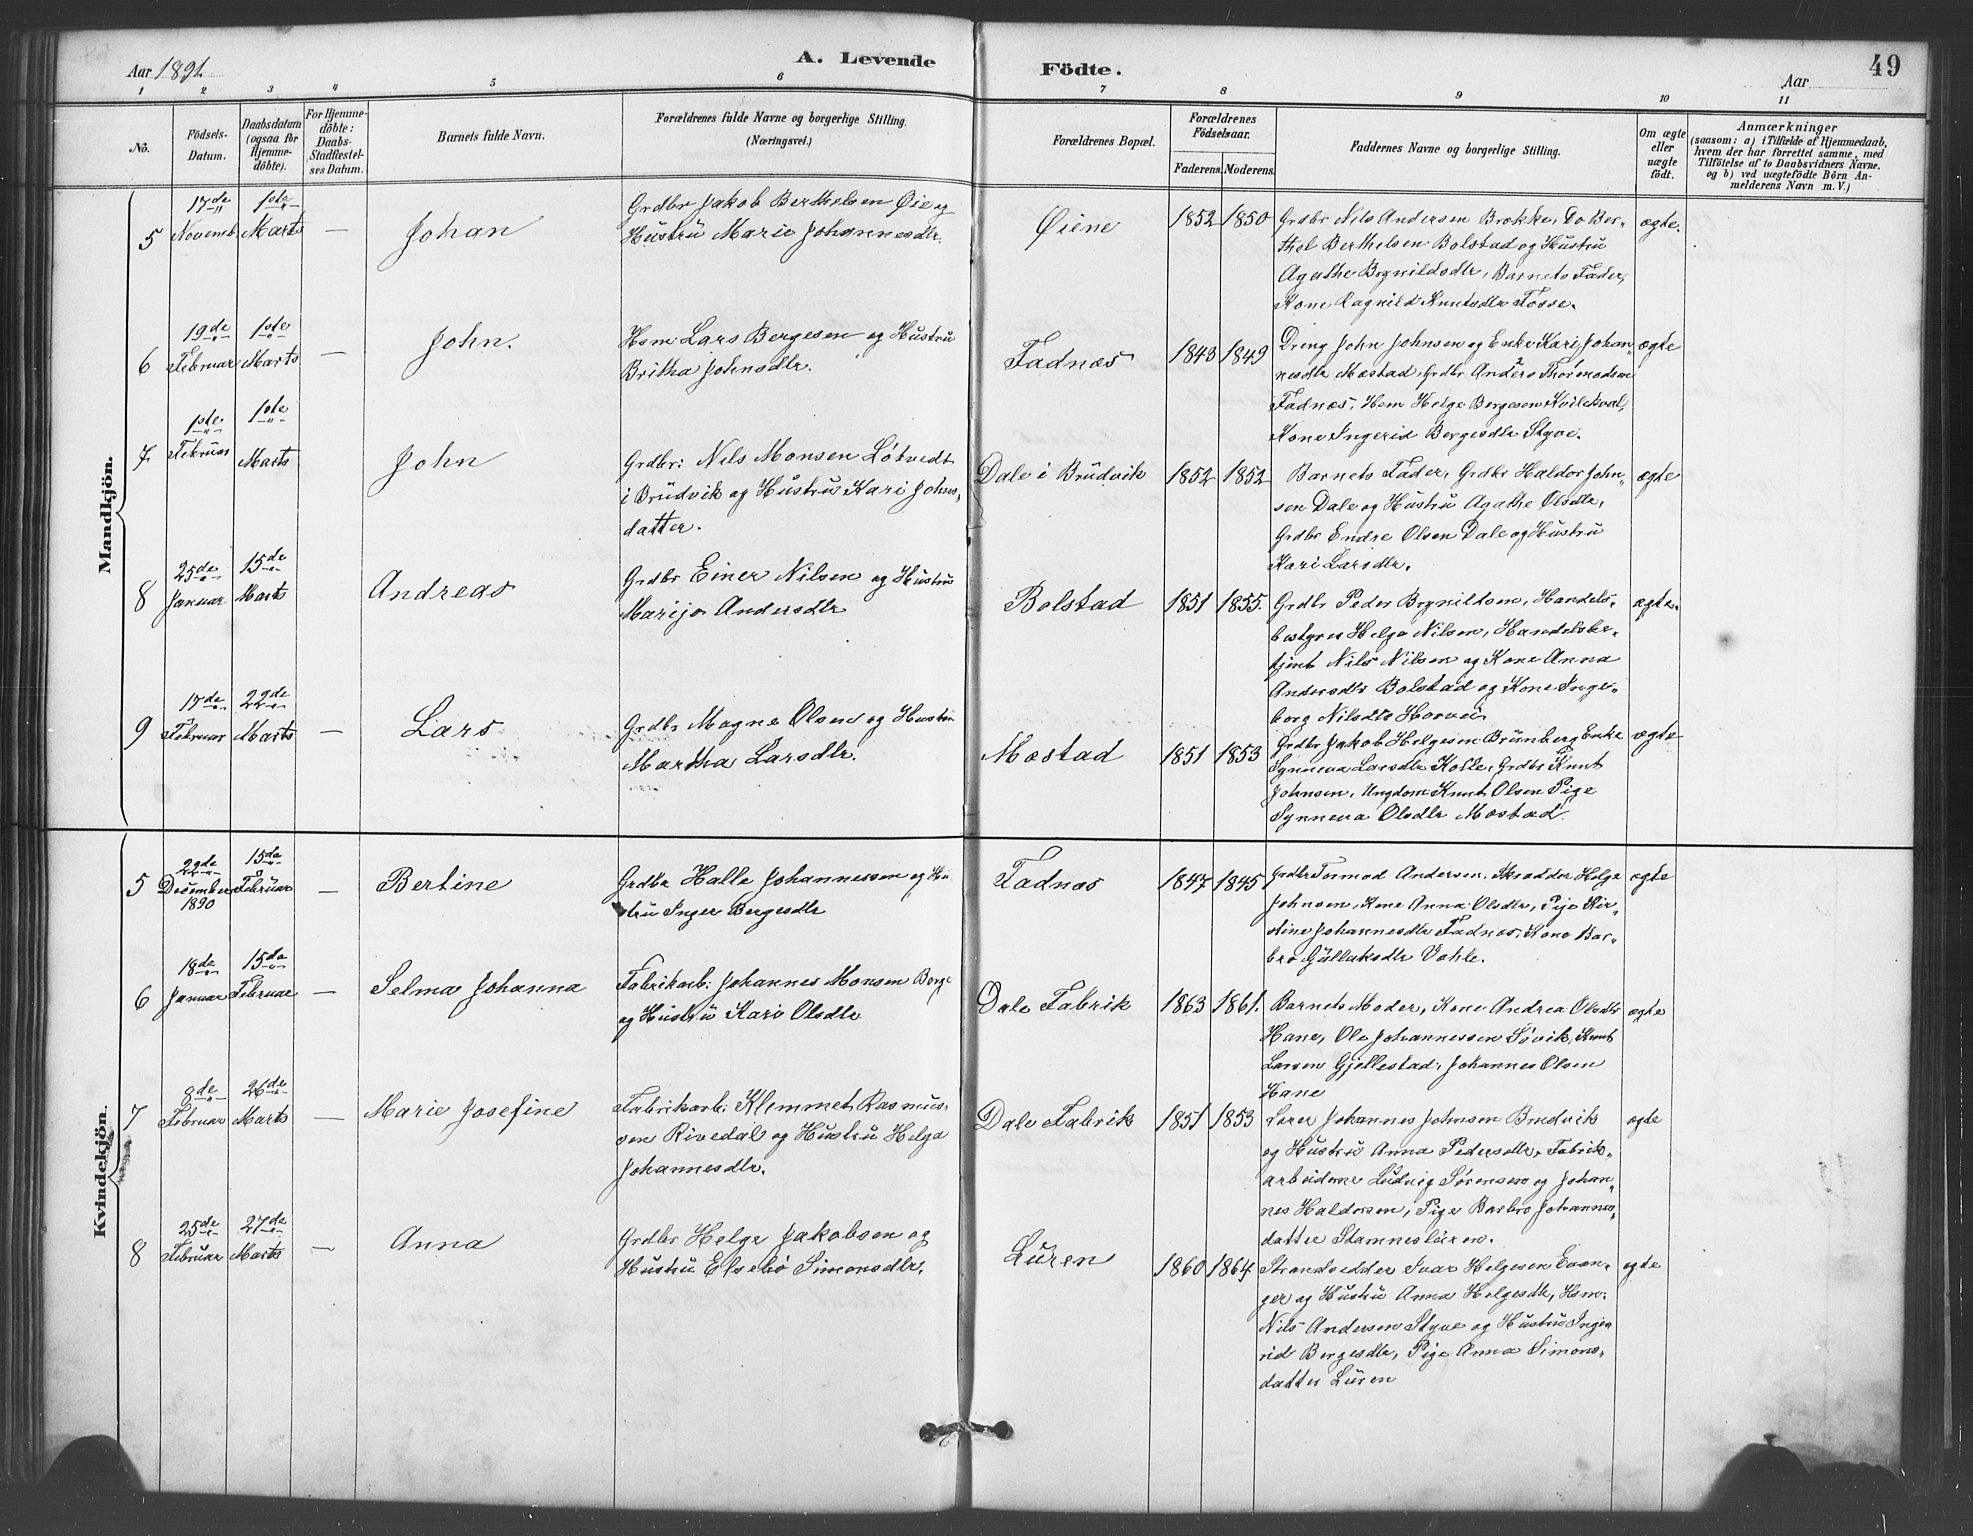 Aar 1891
A. Levende
Födte.
Aar
49
1 2 3 4 5 6 7 8 9 10 11
No.
Födsels-Datum.
Daabsdatum (ogsaa for Hjemmedöbte).
For Hjemmedöbte: Daabs-Stadfestelses Datum.
Barnets fulde Navn.
Forældrenes fulde Navne og borgerlige Stilling.
(Næringsvei.)
Forældrenes Bopæl.
Forældrenes Födselsaar.
Faderens. Moderens.
Faddernes Navne og borgerlige Stilling.
Om ægte eller uægte födt.
Anmærkninger
(saasom: a) i Tilfælde af Hjemmedaab,
hvem der har forrettet samme, med
Tilföielse af to Daabsvidners Navne.
og b) ved uægtefödte Börn An-
melderens Navn m. V.)
Mandkjön.
5
17de Novemb.
1ste Marts
—
Johan
Grdbr Jakob Berthelsen Øie og
Hustru Mari Johannesdtr.
Øiene
1852 1850
Grdbr Nils Andersen Brække, Do Ber-
thel Berthelsen Bolstad og Hustru
Agathe Brynildsdtr, Barnets Fader,
Kone Ragnild Knutsdtr Fosse.
ægte.
6
19de Februar
1ste Marts
—
John.
Hsm Lars Bergesen og Hustru
Britha Johnsdtr.
Fadnæs
1843 1849
Dreng John Johnsen og Enke Kari Johan-
nesdtr Mæstad, Grdbr Anders Thormodsen
Fadnæs, Hsm Helge Bergesen Kvilekval,
Kone Ingerid Bergesdtr Styve.
ægte
7
1ste Februar
1ste Marts
John
Grdbr: Nils Monsen Løtvedt
i Brudvik og Hustru Kari Johns-
datter.
Dale i Brudvik
1852 1852
Barnets Fader, Grdbr Haldor John-
sen Dale og Hustru Agathe Olsdtr,
Grdbr Endre Olsen Dale og Hustru
Kari Larsdtr.
ægte
8
25de Januar
15de Marts
—
Andreas
Grdbr Einer Nilsen og Hustru
Marijo Andersdtr
Bolstad
1851 1855.
Grdbr Peder Brynildsen, Handels-
bestyrer Helge Nilsen, Handelsbe-
tjent Nils Nilsen og Kone Anna
Andersdtr Bolstad og Kone Inge-
borg Nilsdtr Horvei
ægte.
9
17de Februar
22de Marts
—
Lars
Grdbr Magne Olsen og Hustru
Martha Larsdtr.
Mæstad
1851 1853
Grdbr Jakob Helgesen Brunberg Enke
Synneva Larsdtr Grdbr Knut
Johnsen, Ungdom Knut Olsen Pige
Synneva Olsdtr Mæstad.
ægte
Kvindekjön.
5
22de December 1890
15de Februar
—
Bertine
Grdbr Halle Johannessen og Hu-
stru Inger Bergesdtr
Fadnæs
1847 1845
Grdbr Tormod Andersen, Skrædder Helge
Johnsen, Kone Anna Olsdtr, Pige Kir-
stine Johannesdtr Fadnæs, Kone Bar-
bro Gullaksdtr Vahle.
ægte
6
18de Januar
15de Februar
—
Selma Johanna
Fabrikarb: Johannes Monsen Borge
og Hustru Kari Olsdtr
Dale Fabrik
1863 1861.
Barnets Moder, Kone Andrea Olsdtr
Hane, Ole Johannessen Søvik, Knut
Larsen Gjellestad, Johannes Olsen
Hane
ægte
7
8de Februar
26de Marts
—
Marie Josefine
Fabrikarb: Klemmet Rasmus-
sen Rivedal og Hustru Helga
Johannesdtr.
Dale Fabrik
1851 1853
Lærer Johannes Johnsen Brudvik
og Hustru Anna Pedersdtr, Fabrik-
arbeiderne Ludvig Sørensen og Johan-
nes Haldorsen, Pige Barbro Johannes-
datter Stamnesleiren.
ægte
8
25de Februar
27de Marts
—
Anna
Grdbr Helge Jakobsen og
Hustru Elsebø Simonsdtr.
Luren
1860 1864
Strandsidder Ivar Helgesen Evan-
ger og Hustru Anna Helgesdtr, Hsm:
Nils Andersen Styve og Hustru Inge-
rid Bergesdtr, Pige Anna Simons-
datter Luren
ægte